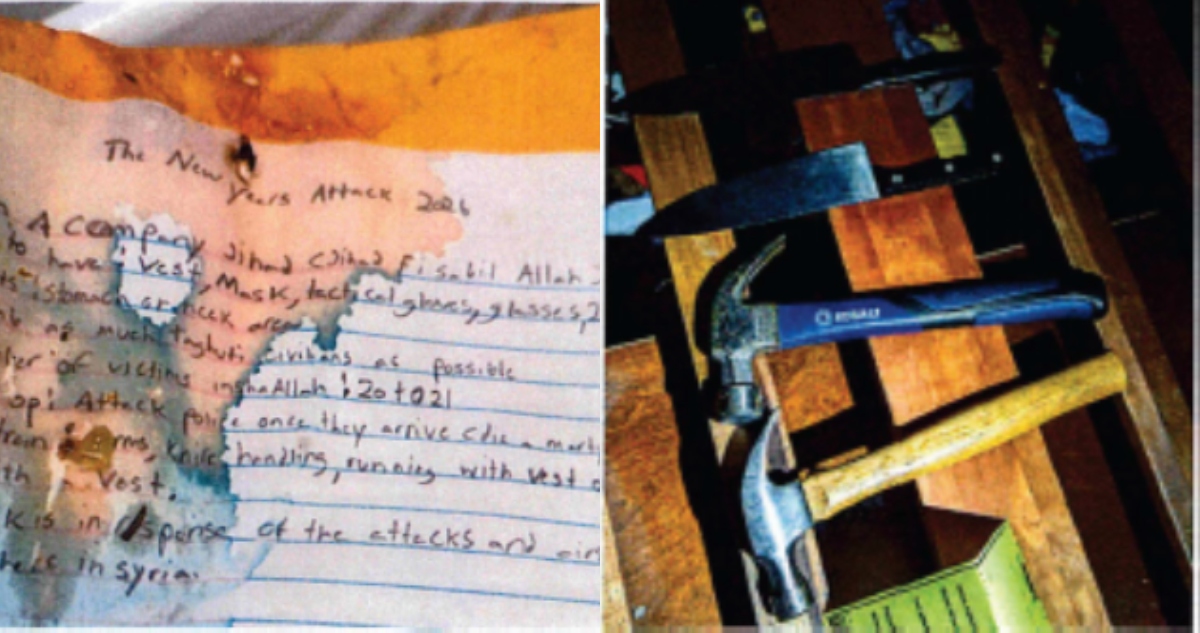 The New Years Attack 2026
A company Jihad (Jihad Fi sabil Allah
to have : vest, Mask, tactical gloves, glasses, 2
stomach or neck area
as much taghuti civilians as possible
of victims inshaAllah : 20 to 21
op: Attack police once they arrive (die a
train : arms, knife handling, running with vest
vest.
k is in response of the attacks and air
in syria.
KOBALT